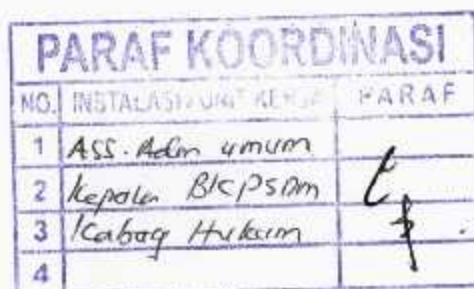 PARAF KOORDINASI
NO. INSTALASI/UNIT KERJA PARAF
1 Ass. Adm umum
2 Kepala BKPSDM
3 Kabag Hukum
4